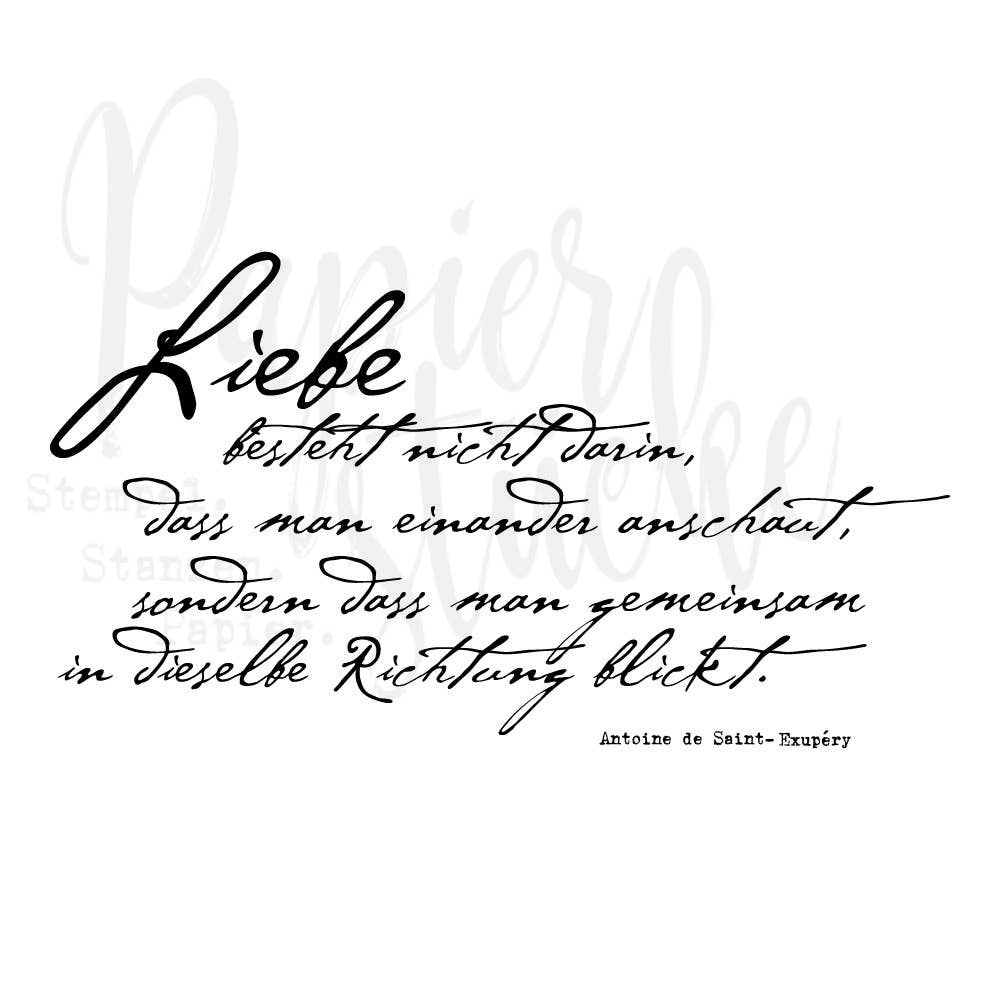 Papier
Stübe
Liebe
besteht nicht darin,
dass man einander anschaut,
Stempel.
Stanzen.
sondern dass man gemeinsam
Papier.
in dieselbe Richtung blickt.
Antoine de Saint-Exupéry